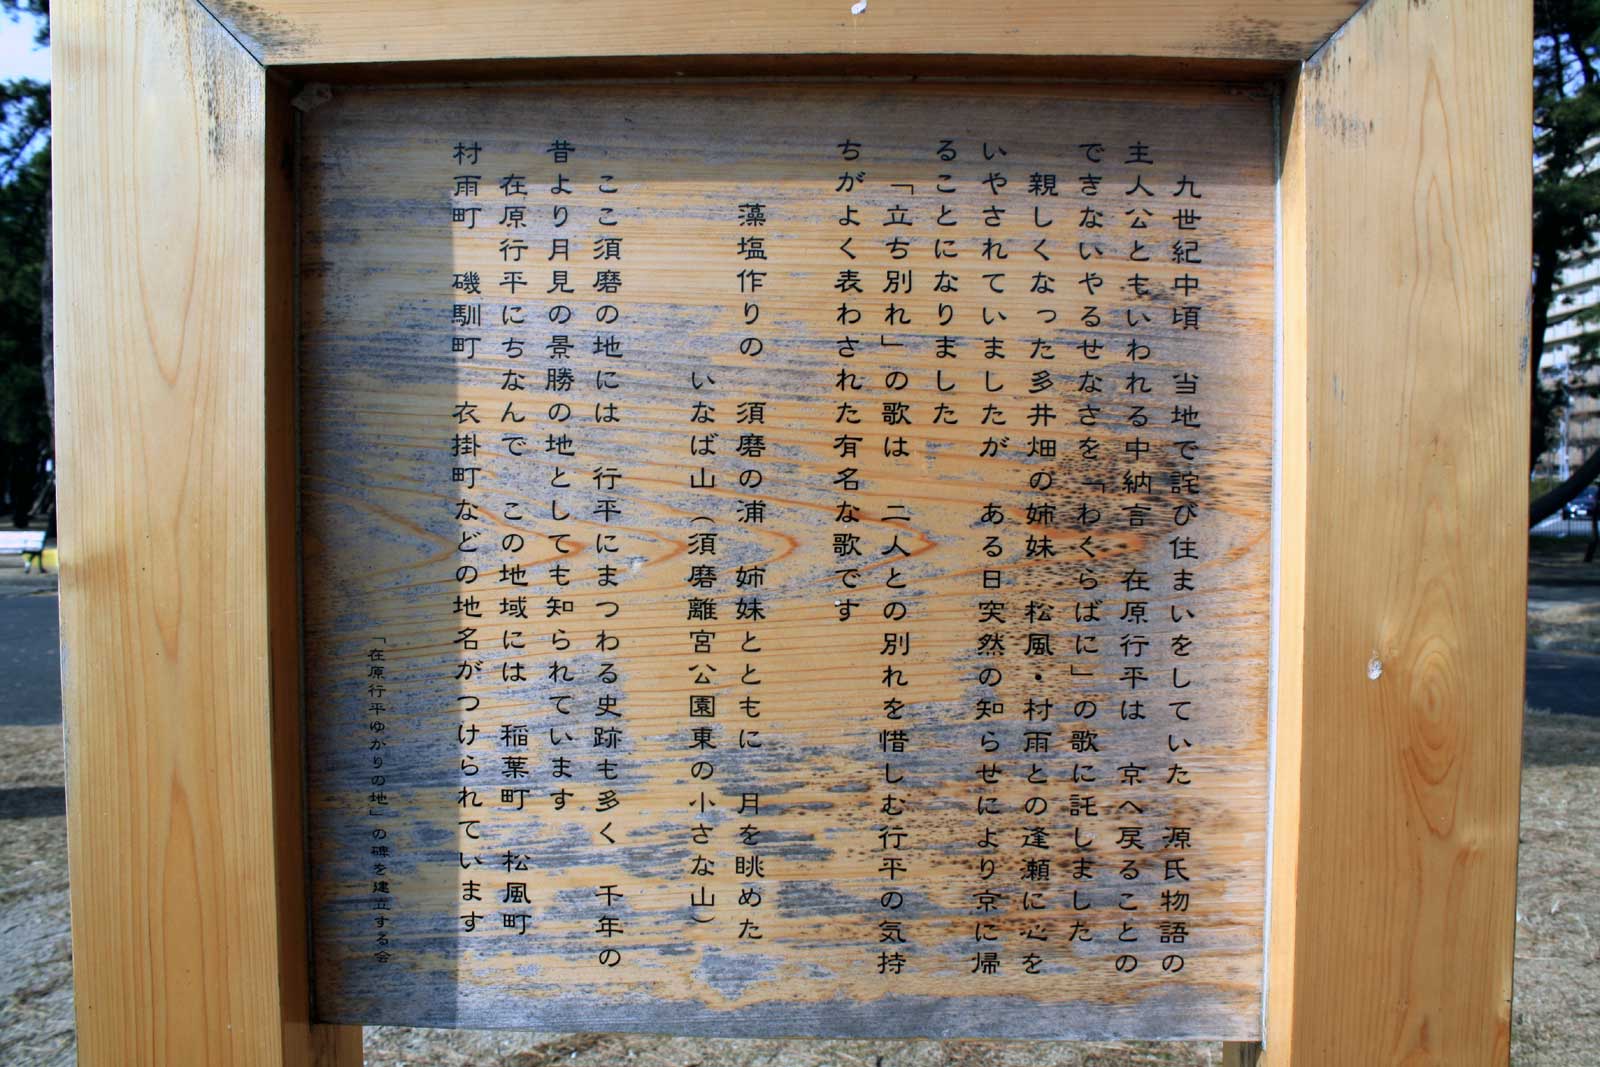 九世紀中頃　当地で詫び住まいをしていた　源氏物語の
主人公ともいわれる中納言　在原行平は　京へ戻ることの
できないやるせなさを「わくらばに」の歌に託しました
親しくなった多井畑の姉妹　松風・村雨との逢瀬に心を
いやされていましたが　ある日突然の知らせにより京に帰
ることになりました
「立ち別れ」の歌は　二人との別れを惜しむ行平の気持
ちがよく表わされた有名な歌です
藻塩作りの　須磨の浦　姉妹とともに　月を眺めた
いなば山（須磨離宮公園東の小さな山）
ここ須磨の地には　行平にまつわる史跡も多く　千年の
昔より月見の景勝の地としても知られています
在原行平にちなんで　この地域には　稲葉町　松風町
村雨町　磯馴町　衣掛町などの地名がつけられています
「在原行平ゆかりの地」の碑を建立する会